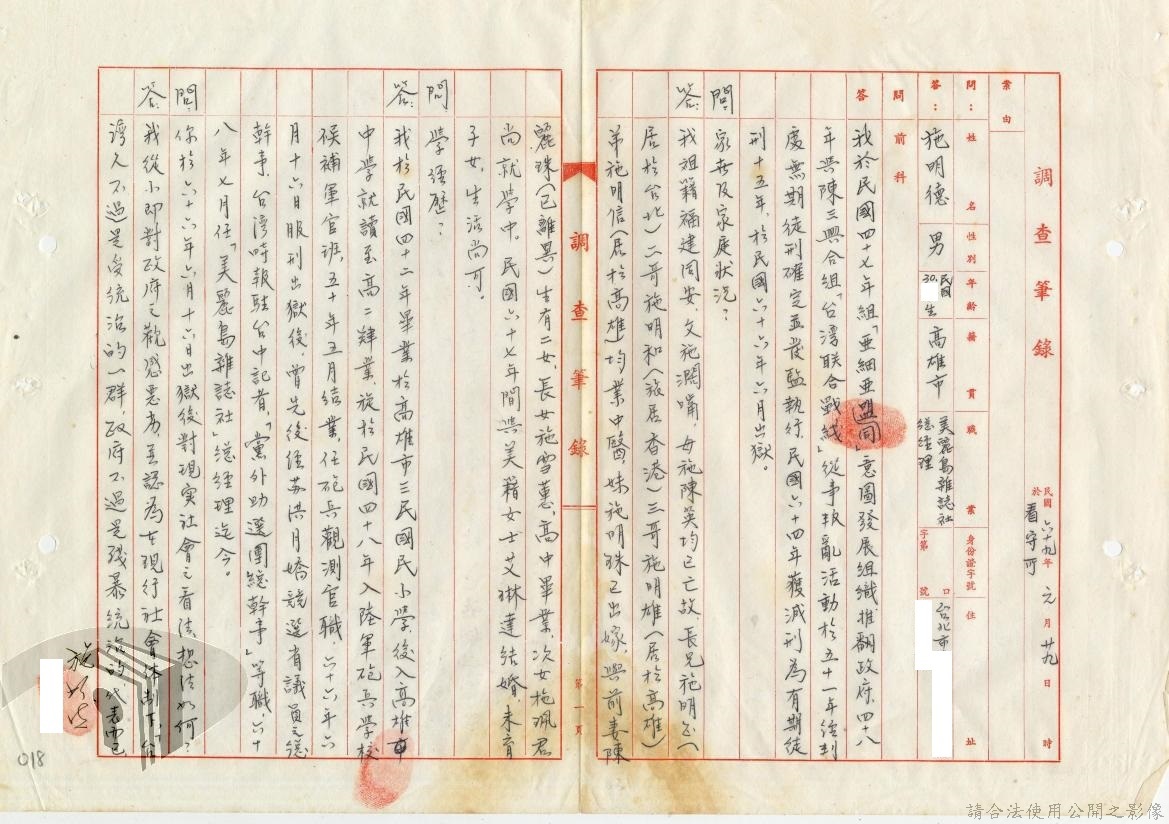 調查筆錄
民國六十九年元月廿九日 時
於看守所
案由
問：姓名 性別 年齡 籍貫 職業 身份證字號 住址
答：施明德 男 民國30. 生 高雄市 美麗島雜誌社總經理 字第 號 台北市
問 前科
答 我於民國四十七年組「亞細亞盟同」意圖發展組織推翻政府，四十八
年與陳三興合組「台灣聯合戰線」從事叛亂活動於五十一年經判
處無期徒刑確定並發監執行，民國六十四年獲減刑為有期徒
刑十五年，於民國六十六年六月出獄。
問：家世及家庭狀況？
答：我祖籍福建同安，父施濶嘴，母施陳英均已亡故，長兄施明正（
居於台北）二哥施明和（旅居香港）三哥施明雄（居於高雄）
弟施明信（居於高雄）均業中醫，妹施明珠已出嫁，與前妻陳
調查筆錄 第一頁
麗珠（已離異）生有二女，長女施雪蕙，高中畢業，次女施珮君
尚就學中，民國六十七年間與美籍女士艾琳達結婚，未育
子女，生活尚可。
問 學經歷？
答：我於民國四十二年畢業於高雄市三民國民小學，後入高雄市
中學就讀至高二肄業，旋於民國四十八年入陸軍砲兵學校
候補軍官班，五十年五月結業，任砲兵觀測官職，六十六年六
月十六日服刑出獄後，曾先後任蘇洪月嬌競選省議員之總
幹事、台灣時報駐台中記者，「黨外助選團總幹事」等職，六十
八年七月任「美麗島雜誌社」總經理迄今。
問：你於六十六年六月十六日出獄後對現實社會之看法、想法如何？
答：我從小即對政府之觀感惡劣，並認為在現行社會体制下，台
灣人不過是受統治的一群，政府不過是殘暴統治的代表而已
施明德
018
請合法使用公開之影像